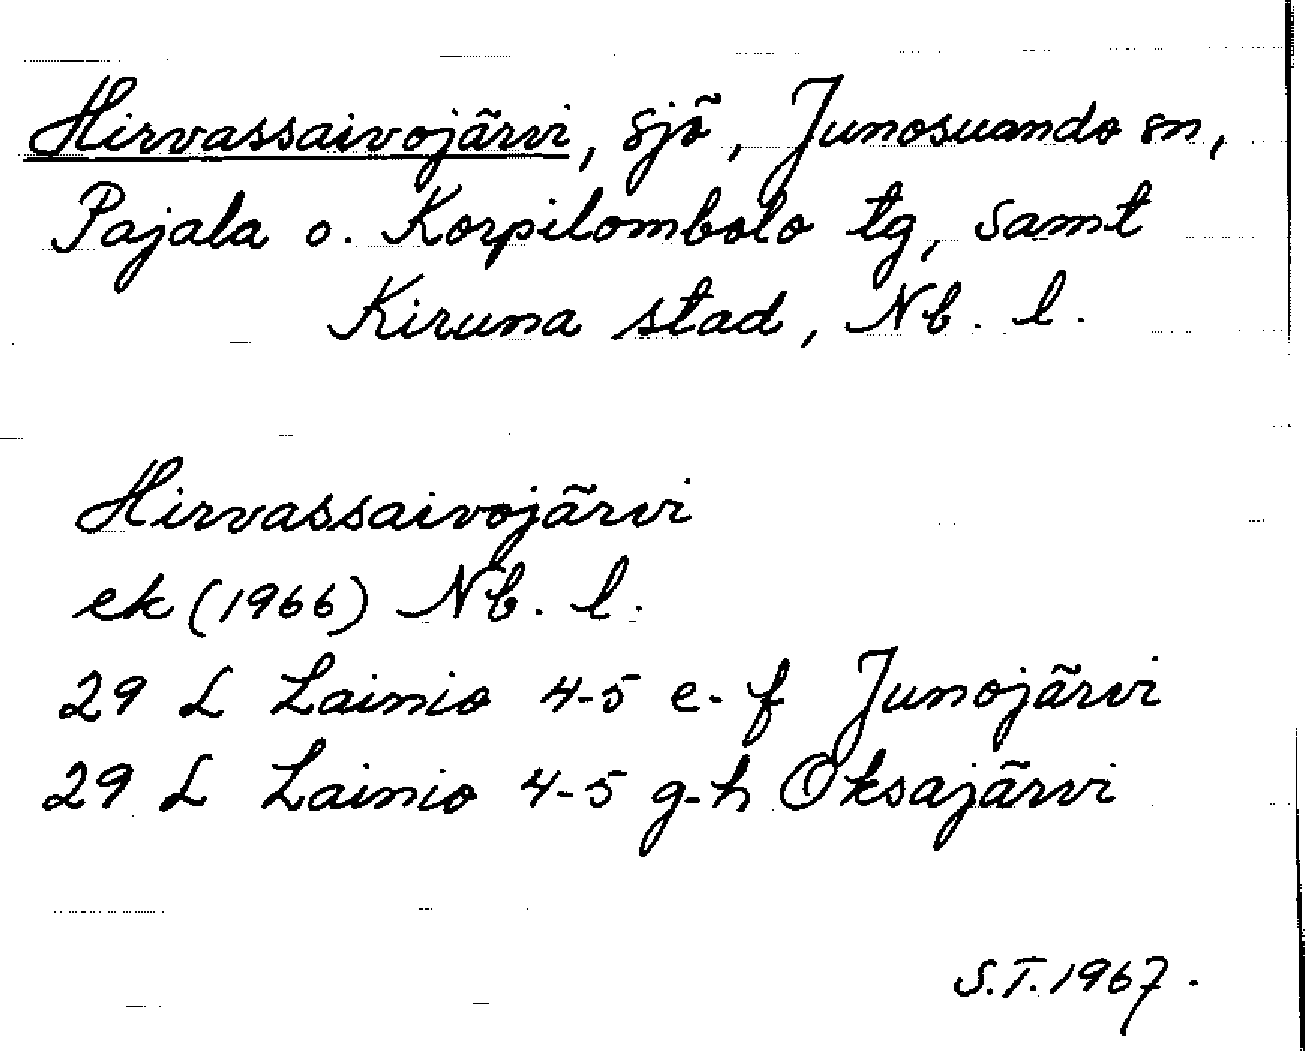 Hirvassaivojärvi, sjö, Junosuando sn,
Pajala o. Korpilombolo tg, samt
Kiruna stad, Nb. l.
Hirvassaivojärvi
ek (1966) Nb. l.
29 L Lainio 4-5 e-f Junojärvi
29 L Lainio 4-5 g-h Oksajärvi
S.T. 1967.